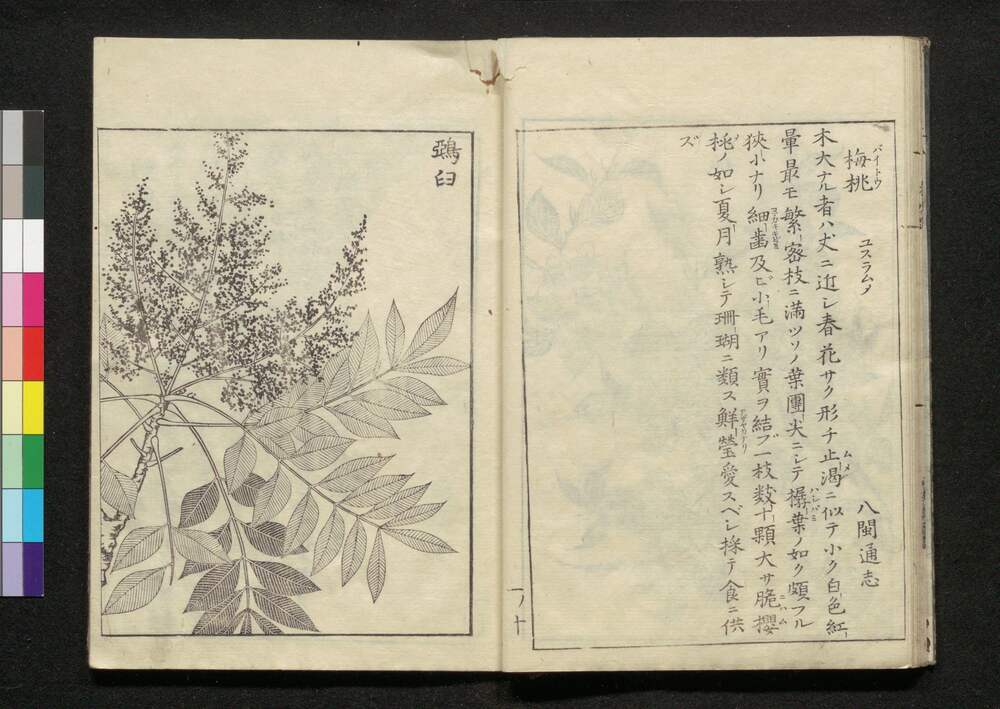 梅桃 ユスラムメ 八閩通志
バイトウ
木大ナル者ハ丈ニ近シ春花サク形チ止渇ニ似テ小ク白色紅
ムメ
暈最モ繁密枝ニ滿ツソノ葉團尖ニシテ榛葉ノ如ク頗フル
ハシバミ
狹小ナリ細齒及ビ小毛アリ實ヲ結ブ一枝数十顆大サ脆櫻
ニハムメ
桃ノ如シ夏月熟シテ珊瑚ニ類ス鮮瑩愛スベシ採テ食ニ供
アザヤカナリ
ズ
一ノ十
鵶臼